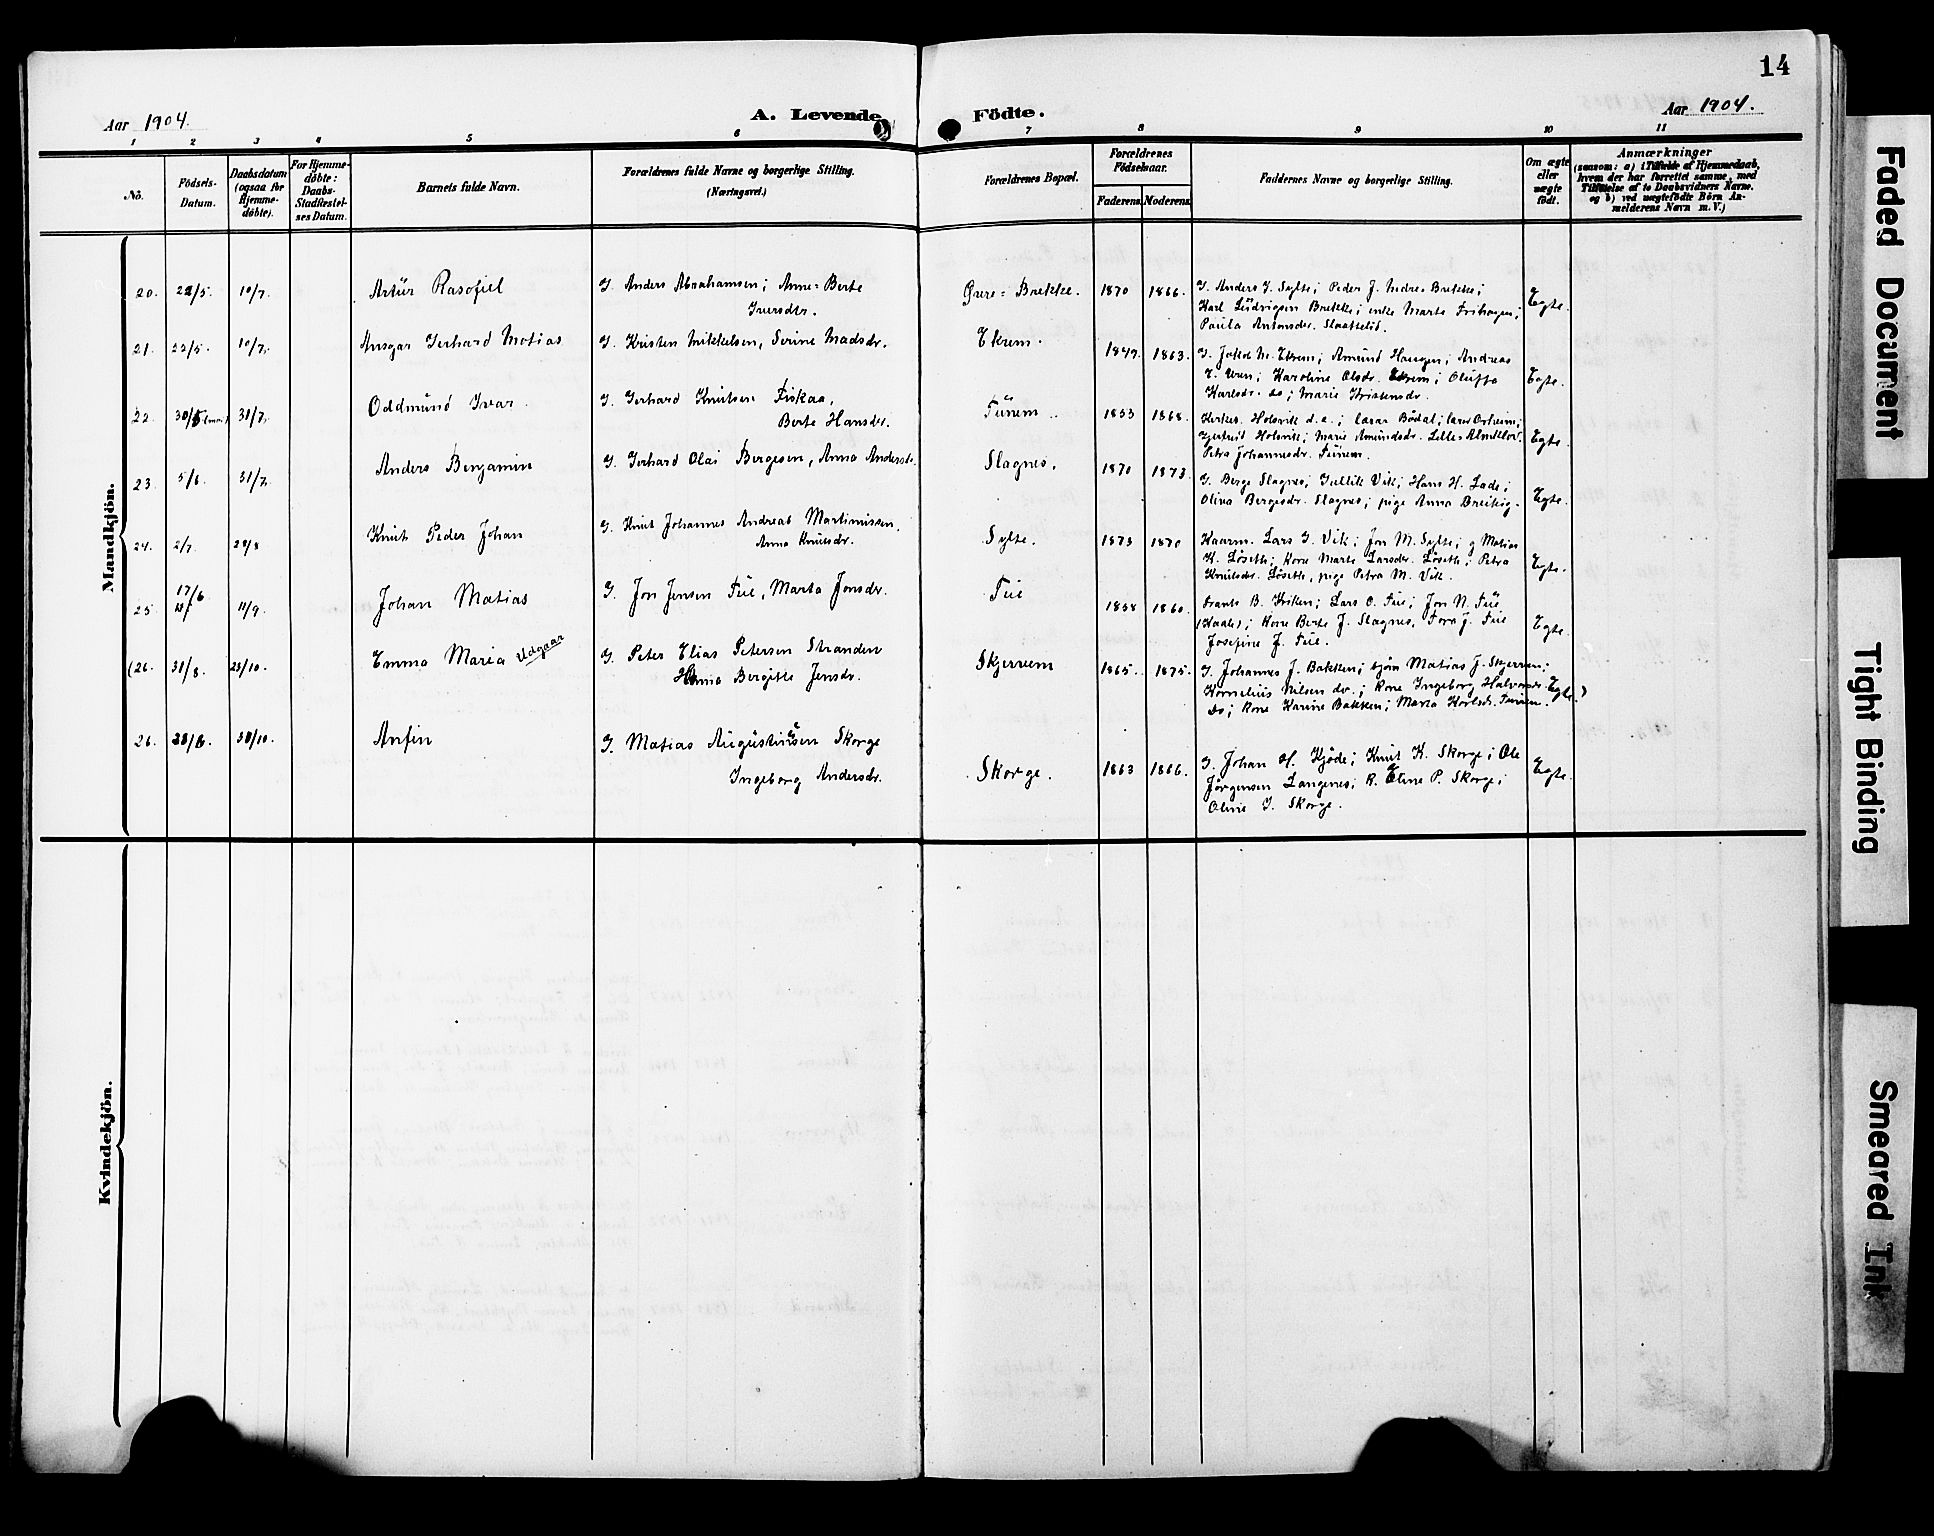 14
Aar 1904.
A. Levende Födte.
Aar 1904.
1 2 3 4 5 6 7 8 9 10 11
No.
Födsels-Datum.
Daabsdatum (ogsaa for Hjemme-døbte).
For Hjemme-døbte: Daabs-Stadfæstel-ses Datum.
Barnets fulde Navn.
Forældrenes fulde Navne og borgerlige Stilling.
(Næringsvei.)
Forældrenes Bopæl.
Forældrenes Födselsaar.
Faderens. Moderens.
Faddernes Navne og borgerlige Stilling.
Om ægte eller uægte födt.
Anmærkninger
(saasom: a) i Tilfælde af Hjemmedaab,
hvem der har forrettet samme, med
Tilföielse af to Daabsvidners Navne.
og b) ved uægtefödte Börn An-
melderens Navn m. V.)
Mandkjön.
20. 22/5. 10/7. Artür Rasofiel G. Anders Abrahamsen; Anne-Berte
Iversdtr.
Øvre-Brekke. 1870 1866. G. Anders I. Sylte; Peder J. Indre-Brekke;
Karl Lüdvigsen Brekke; enke Marte Frihagen;
Paula Antonsdr. Slaattelid.
Egte.
21. 22/5. 10/7. Ansgar Gerhard Matias G. Kristen Mikkelsen, Serine Madsdr.
Ekrem. 1849. 1863. G. Jakob M. Ekrem; Amünd Haugen; Andreas
E. Uren; Karoline Olsdr. Ekrem; Oluffa
Karlsdr. do; Marie Kristensdr.
Egte.
22. 30/5 31/7. Oddmünd Ivar. G. Gerhard Knutsen Fiskaa,
Berte Hansdr.
Tünem. 1853 1868. Kirkes. Holsvik d. e.; Lasse Bødal; Lars Orheim;
Gjertrüd Holsvik; Marie Amündsdr. Lille-Almeklov.
Petra Johannesdr. Tünem.
Egte.
23. 5/6. 31/7. Anders Benjamin G. Gerhard Olai Bergesen, Anna Andersdr.
Slagnes. 1870 1873. G. Berge Slagnes; Gullik Vik; Hans H. Lade;
Olina Bergesdr. Slagnes; pige Anna Breivig.
Egte.
24. 2/7. 28/8 Knut Peder Johan G. Knut Johannes Andreas Martinussen,
Anna Knutsdr.
Sylte. 1873 1870 Kaarm. Lars G. Vik; Jon M. Sylte; g Matias
K. Løseth; Kone Marte Larsdr. Løseth; Petra
Knutsdr. Løseth, pige Petra M. Vik.
Egte.
25. 17/6 11/9. Johan Matias G. Jon Jensen Tue, Marta Jonsdr.
Tue 1858 1860. Frants B. Kriken; Lars O. Tue; Jon N. Tue
(Kaale); Kone Berte J. Slagnes, Tora J. Tue
Josefine J. Tue.
Egte.
(26. 31/8. 23/10. Emma Maria Udgaar G. Peter Elias Petersen Stranden
Hanna Bergitte Jensdr.
Skjervem 1865. 1875. G. Johannes J. Bakken; sjøm Matias J. Skjerven;
Kornelius Nilsen do.; Kone Ingeborg Halvorsdr.
do; Kone Karine Bakken; Marta Karlsdr. Tunem.
Egte.)
26. 28/8. 30/10. Anfin G. Matias Augustinusen Skorge
Ingeborg Andersdr.
Skorge. 1863 1866. G. Johan H. Kjøde; Knut K. Skorge; Ole
Jørgensen Langenes; K. Eline P. Skorge;
Oline G. Skorge.
Egte.
Kvindekjön.
Faded Document
Tight Binding
Smeared Ink